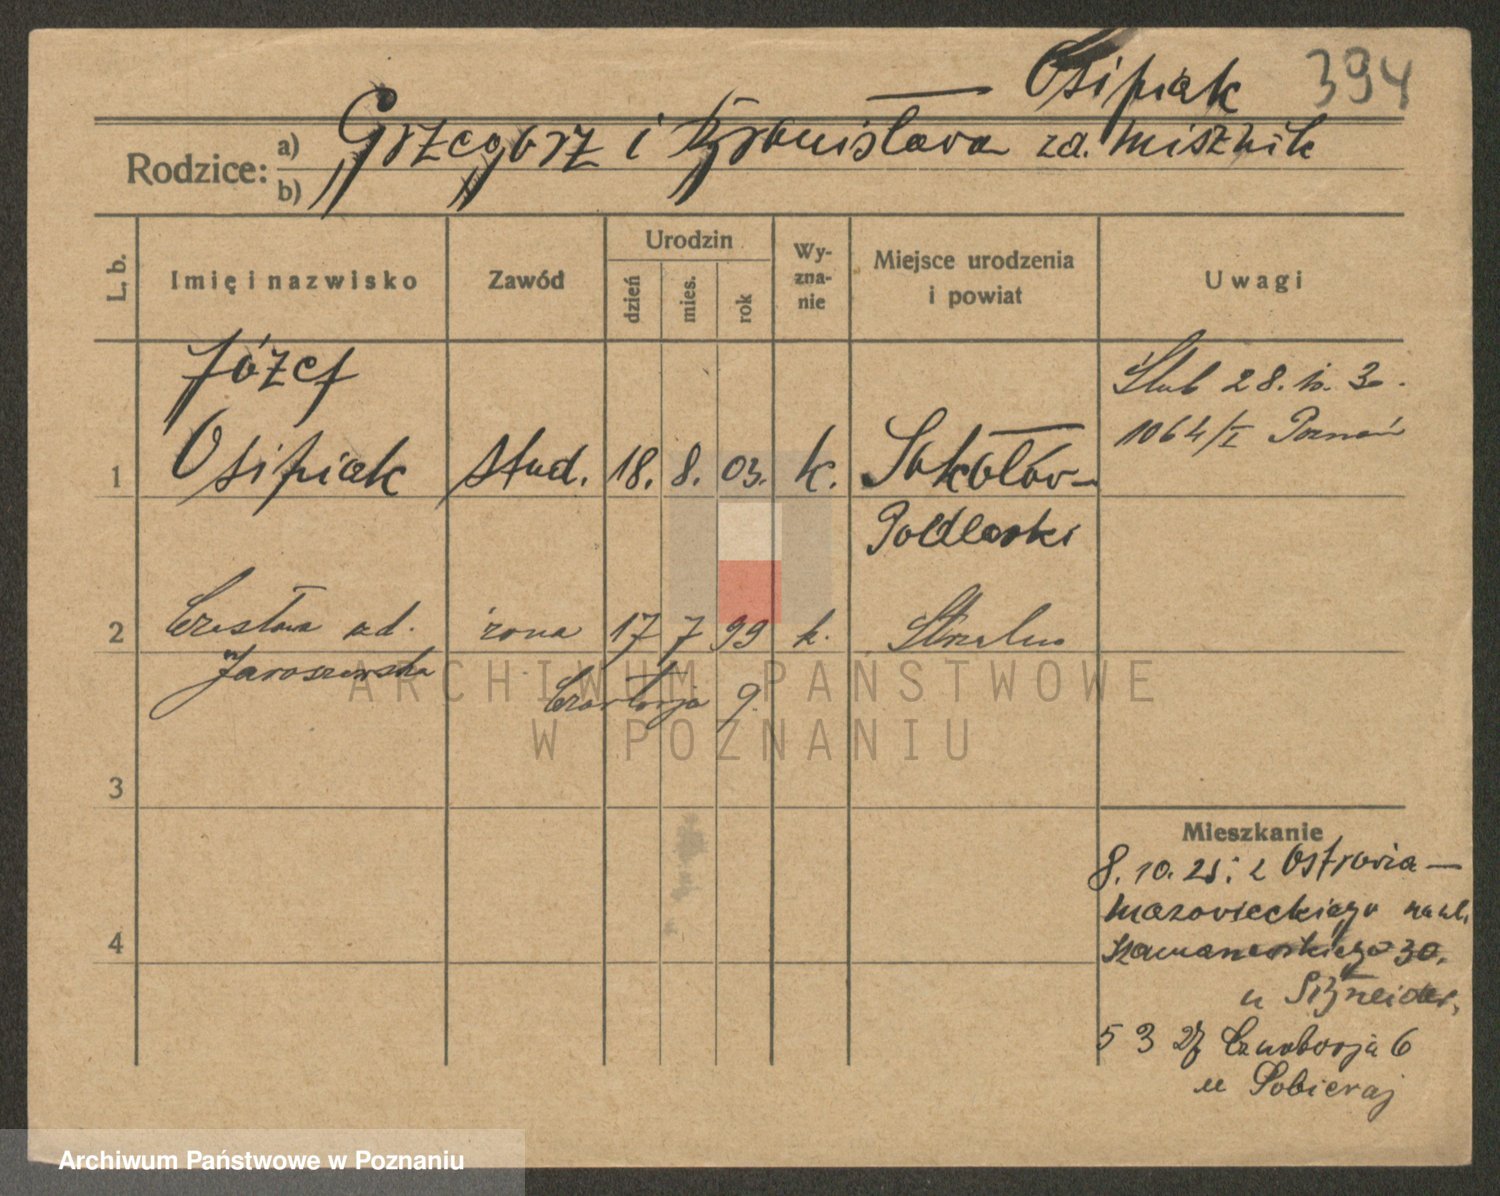 Osipiak 394
Rodzice: a) Grzegorz i Bronisława za. Misznik
b)
L. b.
Imię i nazwisko
Zawód
Urodzin
dzień
mies.
rok
Wy-
zna-
nie
Miejsce urodzenia
i powiat
Uwagi
Józef
Ślub 28. 10. 30.
1064/I Poznań
1 Osipiak stud. 18. 8. 03. k. Sokołów-
Podlaski
2 Czesława żona 17 7 99 k. Strzelno
Jaroszewska
Czartorja 9.
3
4
Mieszkanie
8. 10. 25: z Ostrowia-
Mazowieckiego na ul.
30.
u
5 3 27 6
u Sobieraj
ARCHIWUM PAŃSTWOWE
W POZNANIU
Archiwum Państwowe w Poznaniu